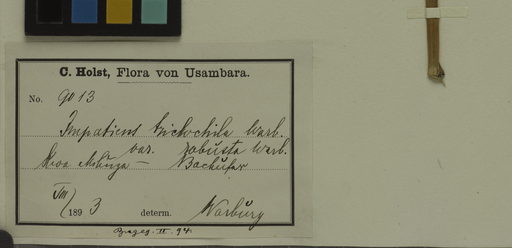 C. Holst, Flora von Usambara.
No. 9013
Impatiens trichochila Warb.
var. robusta Warb.
Kwa Mshuza — Bachufer
VIII 1893 determ. Warburg